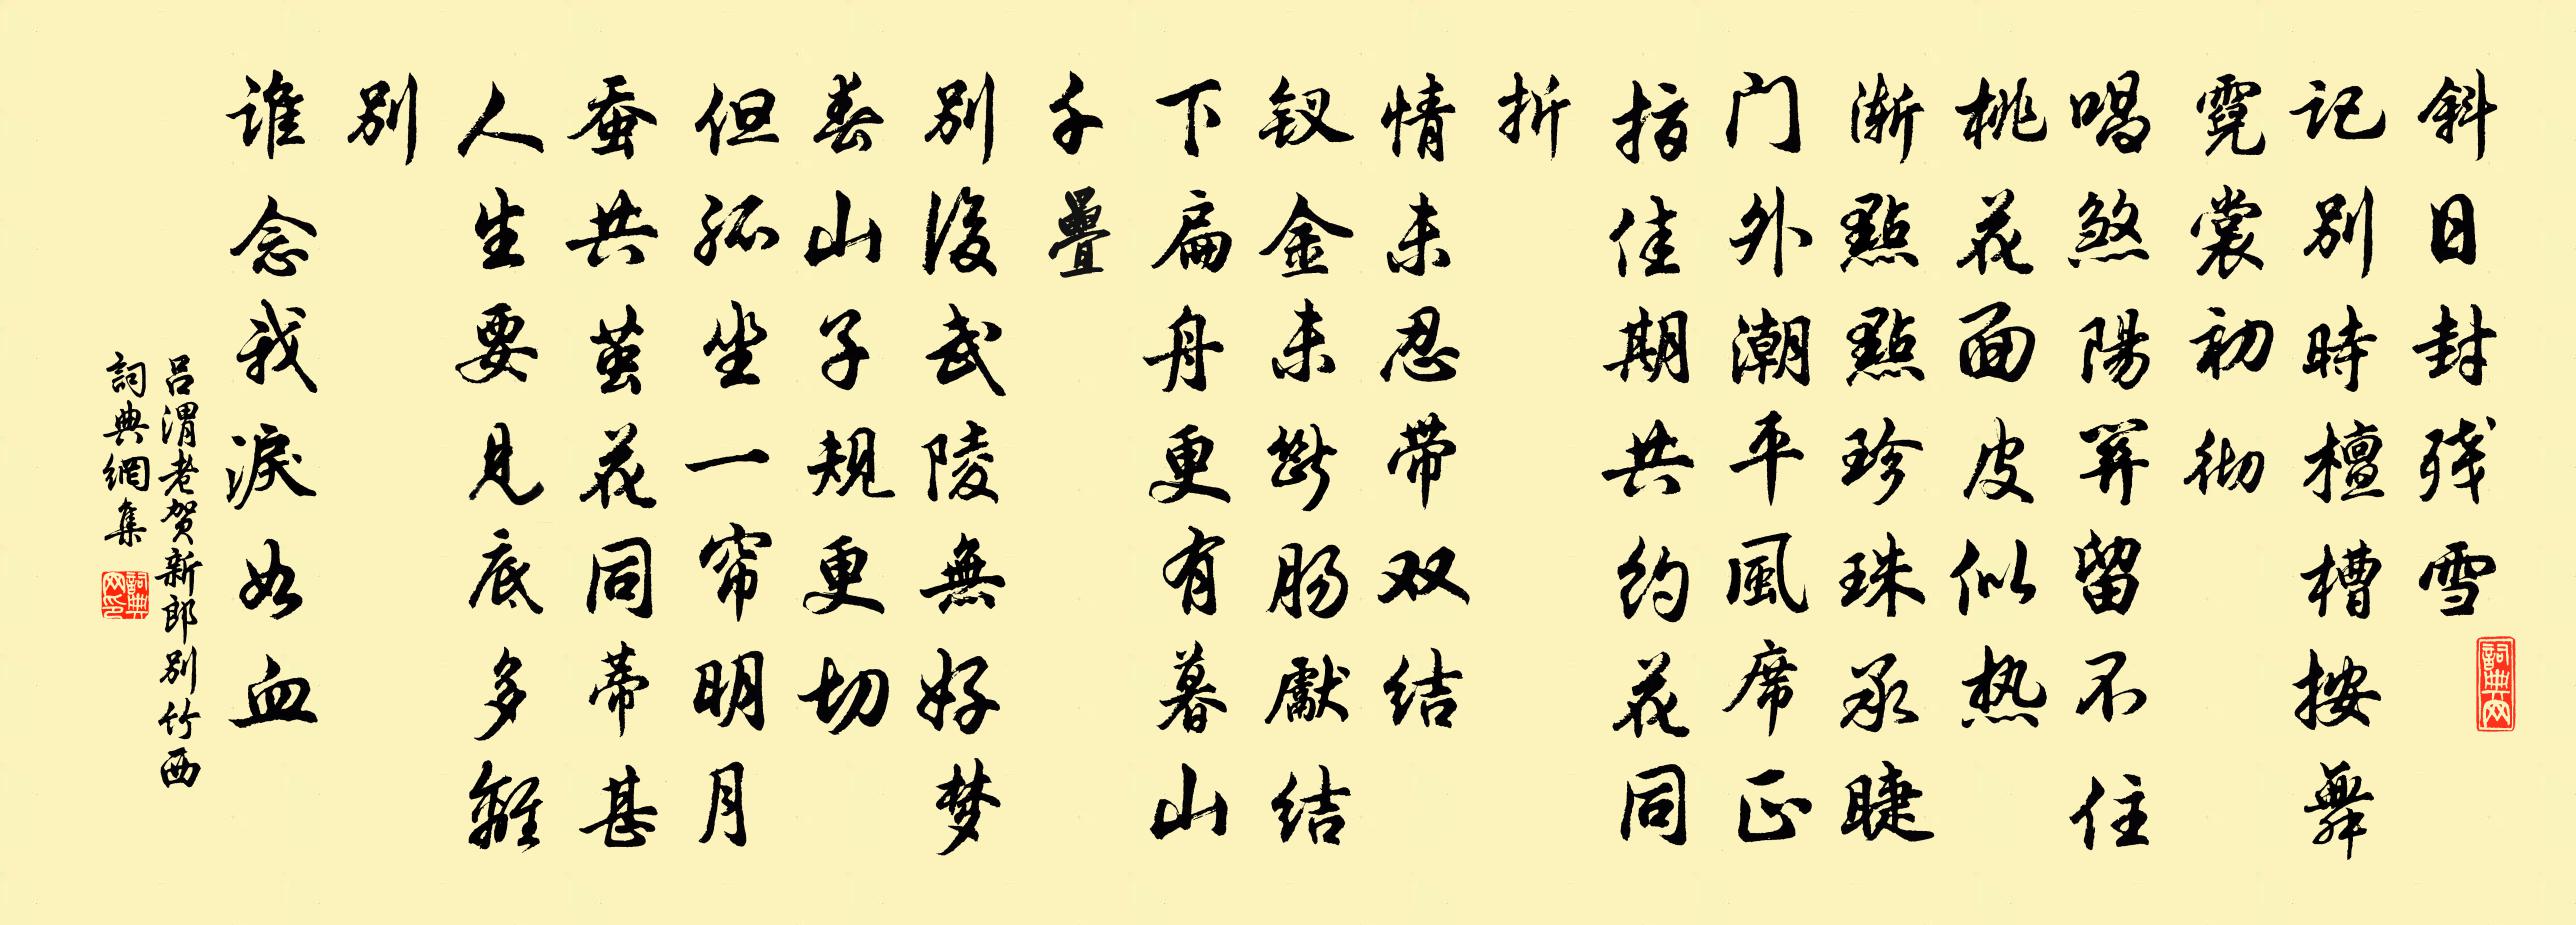 斜日封残雪
记别時檀槽按舞
霓裳初彻
唱煞陽関留不住
桃花面皮似热
渐點點珍珠承睫
门外潮平風席正
指佳期共约花同
折
情未忍带双结
钗金未断肠先结
下扁舟更有暮山
千疊
别後武陵無好梦
春山子规更切
但孤坐一帘明月
蚕共茧花同蒂甚
人生要見底多離
别
谁念我淚如血
吕渭老贺新郎别竹西
詞典網集
詞典网
詞典网印